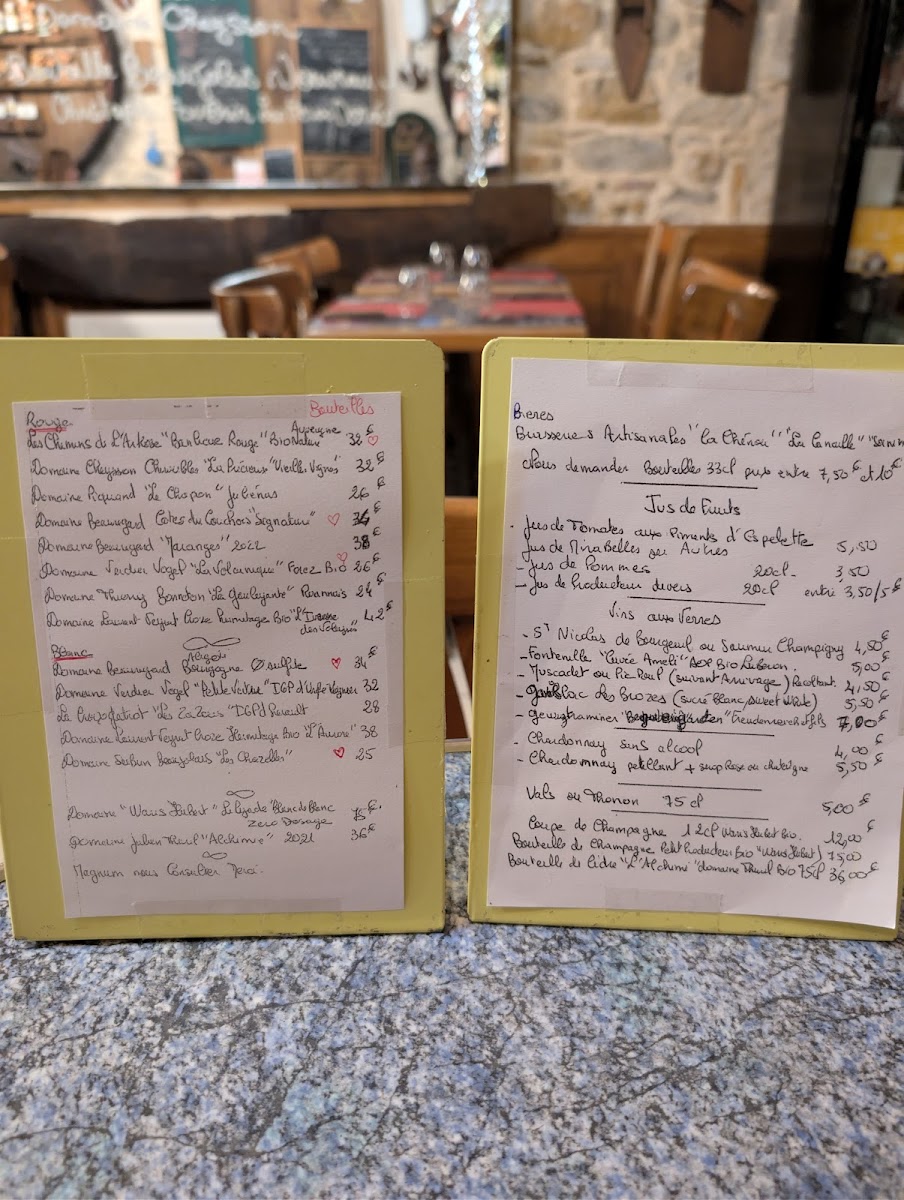 Domaine Cheysson
Rouge
Bouteilles
Auvergne
Les Chemins de L'Arkose "Banlieue Rouge" Bio Nature 32€
Domaine Cheysson Chiroubles "La Précieuse" Vieilles Vignes" 32€
Domaine Piquand "Le Chapon" Juliénas 26€
Domaine Beauregard Cotes du Couchois "Signature" 34€
Domaine Beauregard "Maranges" 2022 38€
Domaine Verdier Vogel "La Volcanique" Forez Bio 26€
Domaine "Thierry Bonneton "La Gouleyante" Roannais 24€
Domaine Laurent Veyrat Croze Hermitage Bio "L' 42€
Blanc
Domaine Beauregard Bourgogne Ø sulfite 34€
Domaine Verdier Vogel "Petite Vertue" IGP d'Urfé Viognier 32
"Les ZaZous" IGP d'Herault 28
Domaine Laurent Veyrat Croze Hermitage Bio "L'Aurore" 38
Domaine Beaujolais "Les Chazelles" 25
Domaine "Waris Hubert" Blanc de Blanc 75€
Zero Dosage
Domaine Julien Thurel "Alchimie" 2021 36€
Magnum nous Consulter Merci.
Bieres
Brasseries Artisanales "La Chénou" "La Canaille"
Nous demander Bouteilles 33cl prix entre 7,50€ et 10€
Jus de Fruits
- Jus de Tomates aux Piments d'Espelette
Jus de Mirabelles ou Autres 5,50
- Jus de Pommes 20cl - 3,50
- Jus de Producteur divers 20cl entre 3,50/5€
Vins aux Verres
- St Nicolas de Bourgeuil ou Saumur Champigny 4,50€
- Fontenille "Cuvée Ameli" AOP Bio Luberon. 5,00€
- Muscadet ou Pic Poul (suivant Arrivage) Recoltant. 4,50€
des Brozes (sucré blanc, sweet white) 5,50€
- Gewurztraminer 7,00€
- Chardonnay sans alcool 4,00€
- Chardonnay petillant + sirop Rose ou chataigne 5,50€
Vals ou Thonon 75cl 5,00€
Coupe de Champagne 12cl Waris Hubert Bio. 12,00€
Bouteille de Champagne Petit Producteur Bio "Waris Hubert) 75,00
Bouteille de Cidre "L'Alchimi" domaine Thurel Bio 75cl 36,00€